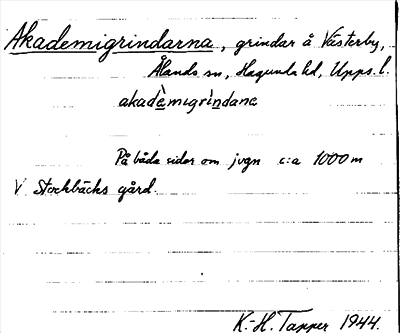 Akademigrindarna, grindar å Västerby,
Ålands sn, Hagunda hd, Upps. l.
akadèmigrìndana
På båda sidor om jvgn c:a 1000 m
V Stockbäcks gård.
K.-H. Tapper 1944.